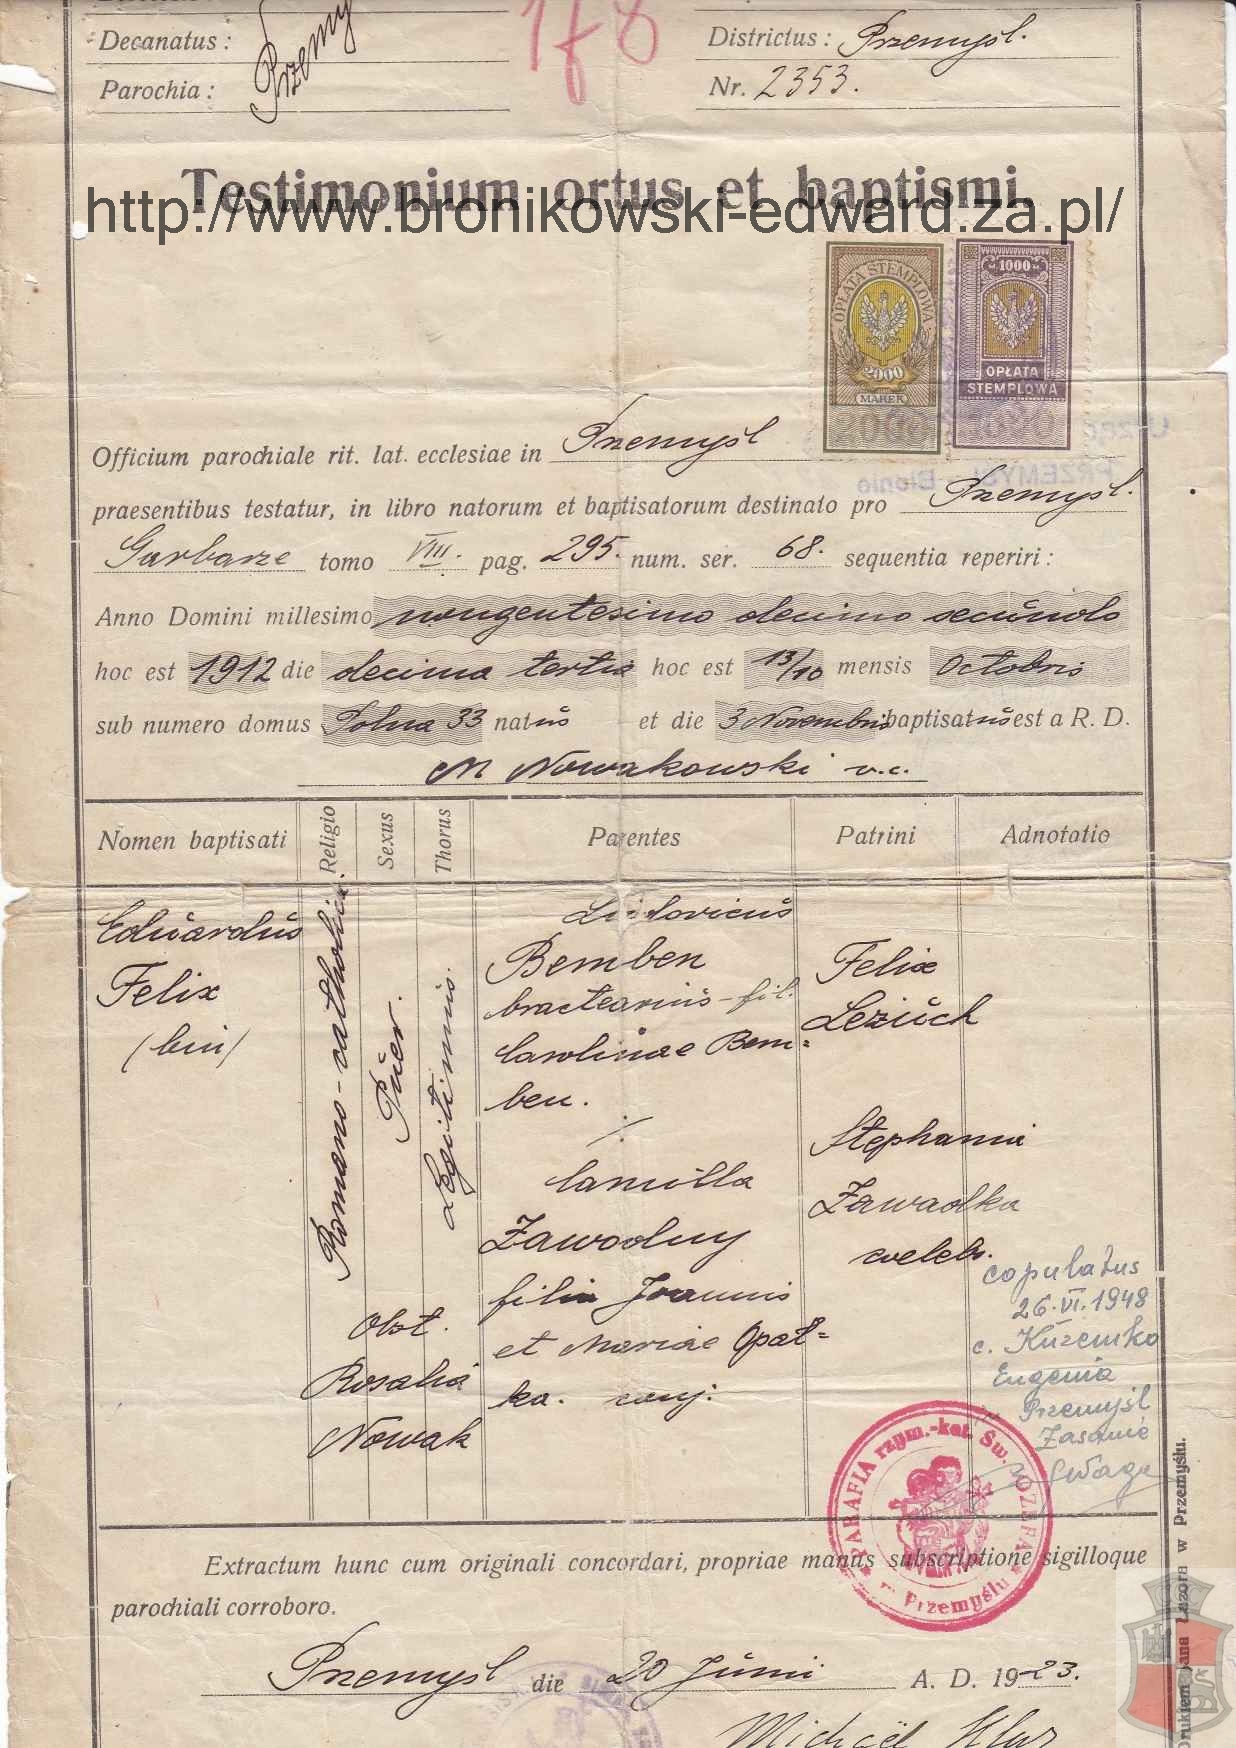 Decanatus : Przemy
178
Districtus : Przemyśl.
Parochia :
Nr. 2353.
Testimonium ortus et baptismi.
http://www.bronikowski-edward.za.pl/
OPŁATA STEMPLOWA
2000
MAREK
1000
OPŁATA
STEMPLOWA
Officium parochiale rit. lat. ecclesiae in Przemyśl
PRZEMYŚL Błonie
praesentibus testatur, in libro natorum et baptisatorum destinato pro Przemyśl.
Garbarze tomo VIII. pag. 295. num. ser. 68. sequentia reperiri :
Anno Domini millesimo nongentesimo decimo secundo
hoc est 1912 die decima tertia hoc est 13/10 mensis Octobris
sub numero domus Polna 33 natus et die 3 Novembris baptisatus est a R. D.
M Nowakowski v.c.
Nomen baptisati Religio Sexus Thorus Parentes Patrini Adnotatio
Eduardus
Felix
(bin)
Romano-catholica.
Puer.
Legitimus.
Obst.
Rosalia
Nowak
Ludovicus
Bemben
bractearius - fil.
Carolinae Bem=
ben.
Camilla
Zawodny
filia Joannis
et Mariae Opat=
ka. conj.
Felix
Lezuch
Stephania
Zawadka
caeleb.
copulatus
26.VI.1948
c. Kuzemko
Eugenia
Przemyśl
Zasanie
PARAFIA rzym.-kat. Św. JÓZEFA
w Przemyślu
Extractum hunc cum originali concordari, propriae manus subscriptione sigilloque
parochiali corroboro.
Przemyśl die 20 Junii A. D. 1923.
Michaël
Drukiem Jana Łazora w Przemyślu.